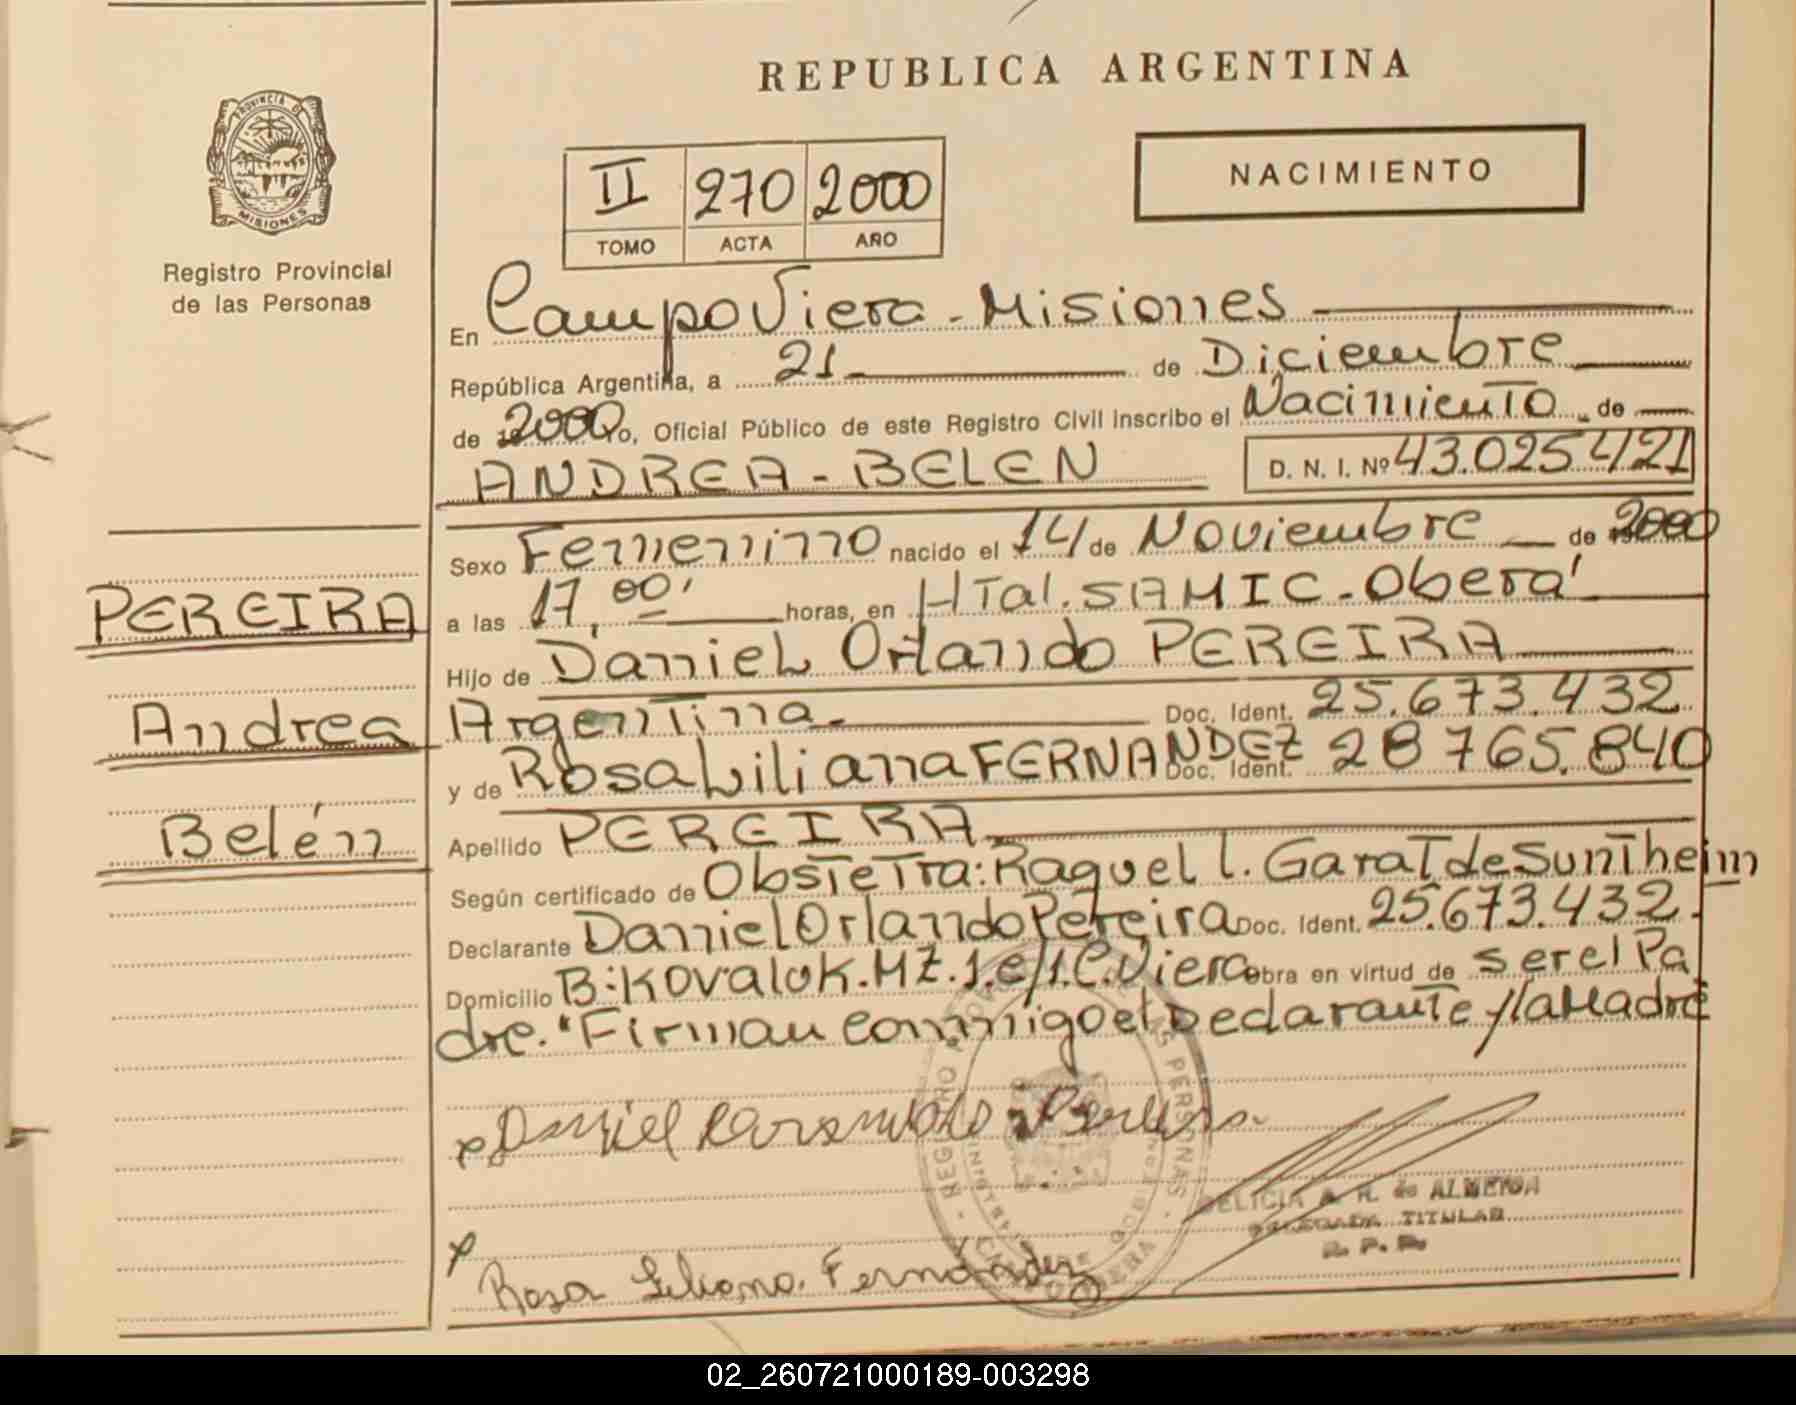 REPUBLICA ARGENTINA
PROVINCIA DE
MISIONES
Registro Provincial
de las Personas
NACIMIENTO
II 270 2000
TOMO ACTA AÑO
En Campo Viera - Misiones
República Argentina, a 21 de Diciembre
de 2000 Yo, Oficial Público de este Registro Civil inscribo el Nacimiento de
ANDREA - BELEN D. N. I. Nº 43.025421
Sexo Femenino nacido el 14 de Noviembre de 2000
a las 17,00' horas, en HTal. SAMIC - Oberá
Hijo de Daniel Orlando PEREIRA
Argentina Doc. Ident. 25.673.432
y de Rosa Liliana FERNANDEZ Doc. Ident. 28765.840
Apellido PEREIRA
Según certificado de ObsTeTra: Raquel l. GaraT de SunTheim
Declarante Daniel Orlando Pereira Doc. Ident. 25.673.432.
Domicilio B: Kovaluk. MZ. 1. C/1. C. Viera obra en virtud de ser el Pa
dre. "Firman conmigo el Declarante y la Madre
PEREIRA
Andrea
Belén
x Daniel
DELICIA A. R. de ALMEIDA
DELEGADA TITULAR
R. P. P.
x Rosa Liliana Fernández
02_260721000189-003298